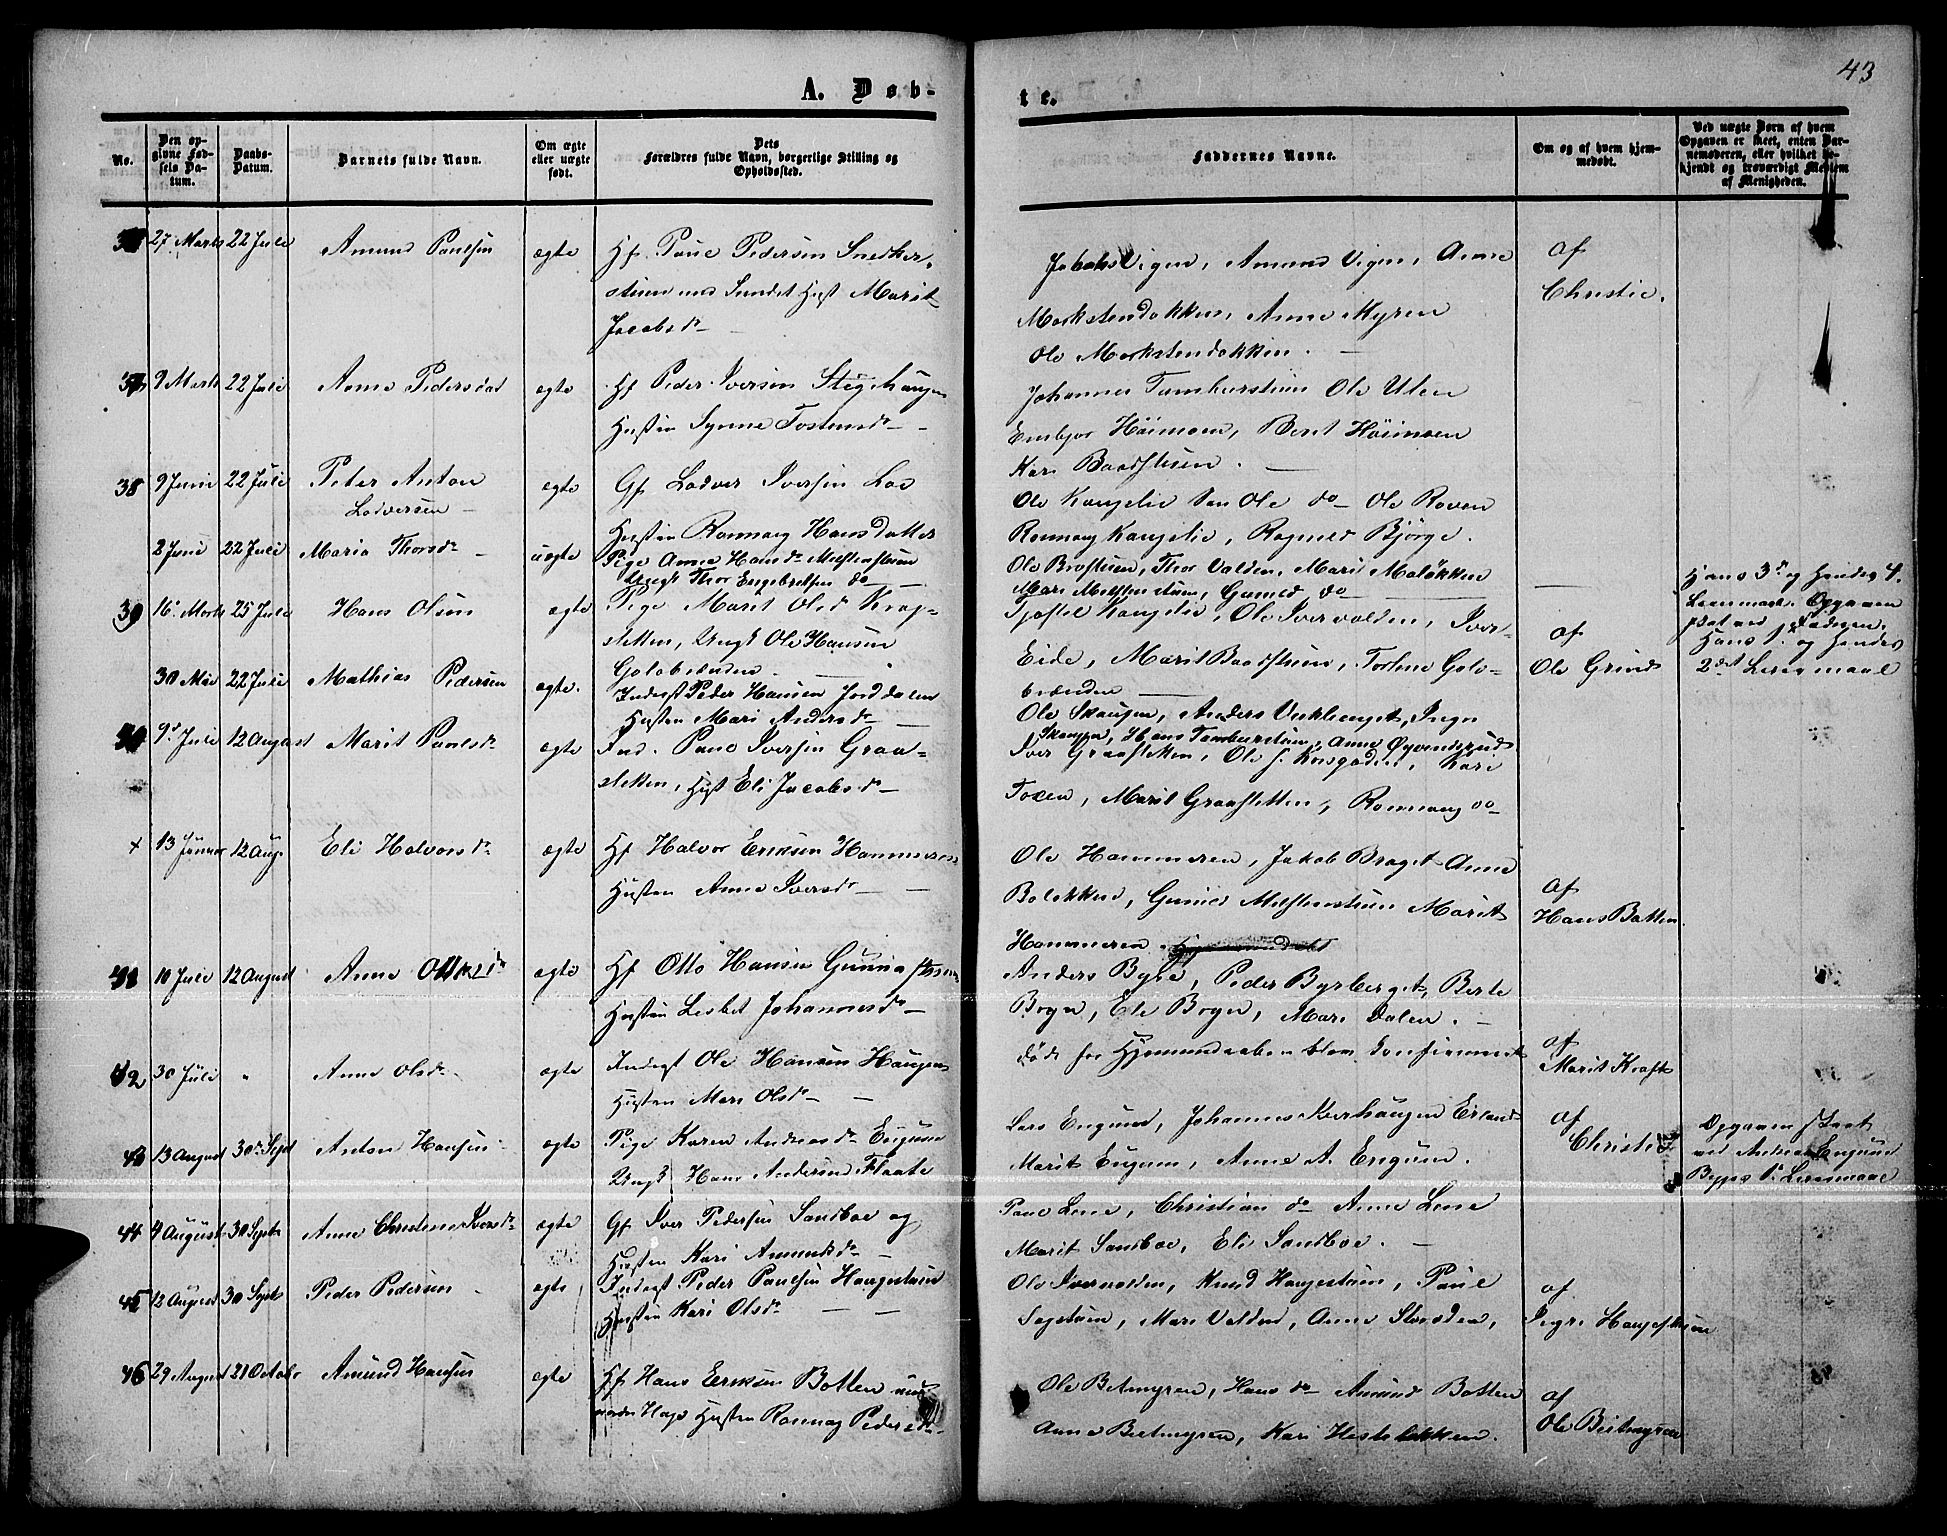 43
A. Døb-
te.
No.
Den op-
givne Fød-
sels Da-
tum.
Daabs-
Datum.
Barnets fulde Navn.
Om ægte
eller uægte
født.
Dets
Forældres fulde Navn, borgerlige Stilling og
Opholdssted.
Faddernes Navne.
Om og af hvem hjem-
medøbt.
Ved uægte Børn af hvem
Opgaven er skeet, enten Bar-
nemoderen, eller hvilket be-
kjendt og troværdigt Medlem
af Menigheden.
27 Marts 22 Juli Amund Paulsen ægte Hf Paul Pedersen Snedker-
stuen und Sundet Hust Marit
Jacobsd.
Vigen, Amund Vigen, Anne
Morkstendokken, Anne Myren
Ole Morkstendokken.
af
Christie.
37 9 Marts 22 Juli Anne Pedersdat ægte Hf Peder Iversen Stegehaugen
Hustru Synne Tostensd.
Johannes Tamburstuen Ole Ulen
Embjør Høimoen, Berit Høimoen
Kari Baadstuen.
38 9 Juni 22 Juli Peter Anton
Lodversen ægte Gf Lodver Iversen Loe
Hustru Ronnaug Hansdatter
Ole Kongelie Søn Ole do Ole Roven
Ronnaug Kongelie, Ragnild Bjørge.
2 Juni 22 Juli Maria Thorsd. uægte Pige Anne Hansd. Melstenstuen
Ungk Thor Engebretsen do
Ole Brostuen, Thor Valden, Marit Moløkken
Mari Melstenstuen, Gunild do
Hans 3d og Hendes 4.
Leiermaal. Opgaven
skat ved Faderen.
39 16 Marts 25 Juli Hans Olsen ægte Pige Marit Olsd
sletten, Ungk Ole Hansen
Golobrænden
Tjøstel Kongelie, Ole Ivervolden, Iver
Eide, Marit Baadstuen, Torlene Golo-
brænden
af
Ole Grind
Hans 1st og Hendes
2det Leiermaal
30 Mai 22 Juli Mathias Pedersen ægte. Inderst Peder Hansen Jorddalen
Hustru Mari Andersd.
Ole Skaugen, Anders Veklenget, Inger
Skaugen, Hans Tamburstuen, Anne Øyenderud
9d Juli 12 August Marit Paulsd. ægte Ind. Paul Iversen Graa-
sletten, Hust Eli Jacobsd.
Iver Graasletten, Ole J. Korsgaden, Kari
Toxen, Marit Graasletten, Ronnaug do
x 13 Januar 12 Aug. Eli Halvorsd. ægte Hf Halvor Eriksen Hammeren
Hustru Anne Iversd.
Ole Hammeren, Jakob Braget Anne
Boløkken, Gunild Melstenstuen Marit
Hammeren.
af
Hans Botten
10 Juli 12 August Anne Ottesd. ægte Hf Otto Hansen
Hustru Lisbet Johannesd.
Anders Byre, Peder Byrberget, Berte
Bogn, Ele Bogn, Mari Dalen.
42 30 Juli " Anne Olsd. ægte Inderst Ole Hansen Haugen
Hustru Mari Olsd.
døde før Hjemmedaaben blev Confirmeret
af
Marit Kraft
43 13 August 30 Sept Anton Hansen ægte Pige Karen Andreasd. Engum
Ungk Hans Andersen Flaate
Lars Engum, Johannes Kverhaugen Erland
Marit Engum, Anne A. Engum.
af
Christie
Opgaven skeet
ved Andreas Engum
Begges 1' Leiermaal
44 4 August 30 Sept Anne Christine Iversd. ægte Gf Iver Pedersen Sandboe og
Hustru Kari Amundsd.
Paul Lene, Christian do Anne Lene
Marit Sandboe, Eli Sandboe.
45 12 August 30 Sept Peder Pedersen ægte Inderst Peder Paulsen Haugestuen
Hustru Kari Olsd.
Ole Ivervolden, Knud Haugestuen, Paul
Sagstuen, Mari Volden, Anne
af
Ingri Haugestuen
46 29 August 21 Octobr Amund Hansen ægte Hf Hans Eriksen Botten und
Hage Hustru Ronnaug Pedersd.
Ole Betmyren, Hans do Amund Botten
Anne Beitmyren, Kari Hesteløkken.
af
Ole Beitmyren